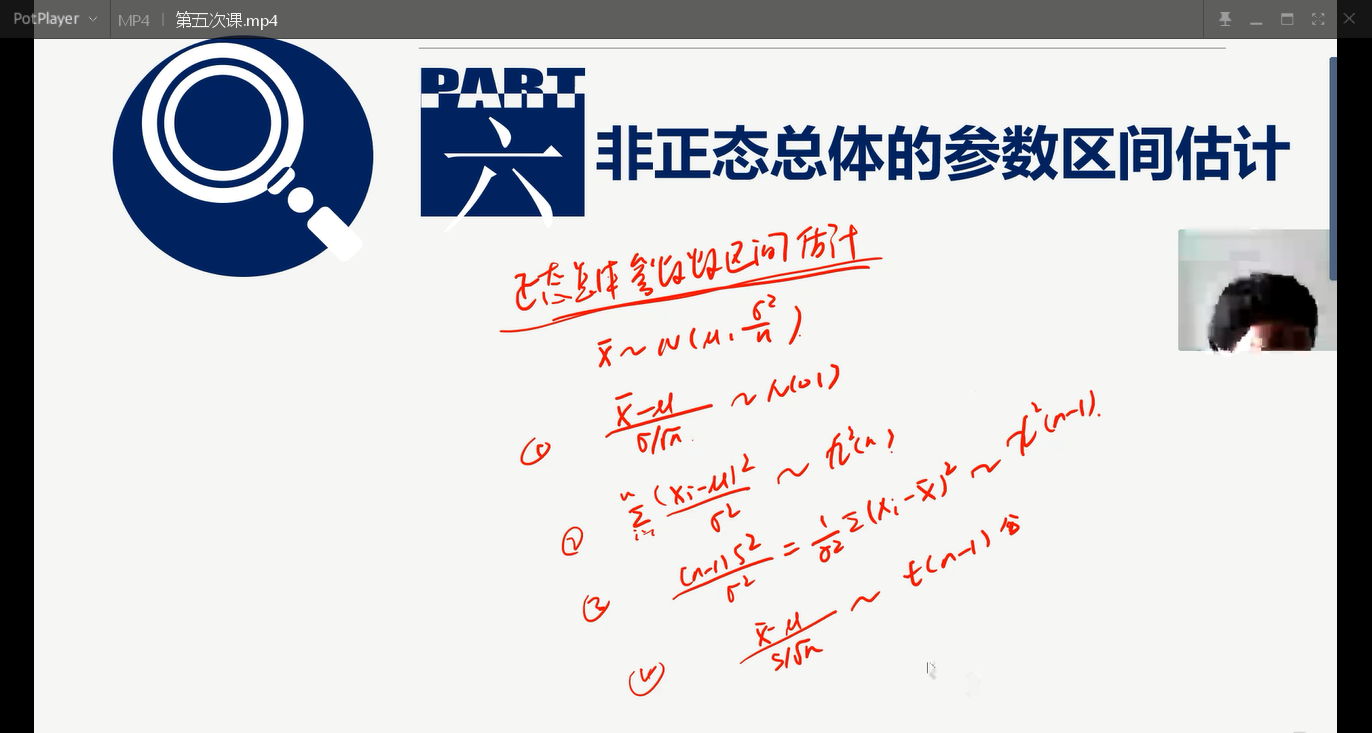 PotPlayer MP4 第五次课.mp4
PART
六
非正态总体的参数区间估计
正态总体参数的区间估计
x̄ ~ N(μ, σ²/n).
① (x̄-μ)/(σ/√n) ~ N(0 1)
② Σᵢ₌₁ⁿ (xᵢ-μ)²/σ² ~ χ²(n)
③ (n-1)S²/σ² = 1/σ² Σ(xᵢ-x̄)² ~ χ²(n-1).
④ (x̄-μ)/(s/√n) ~ t(n-1)